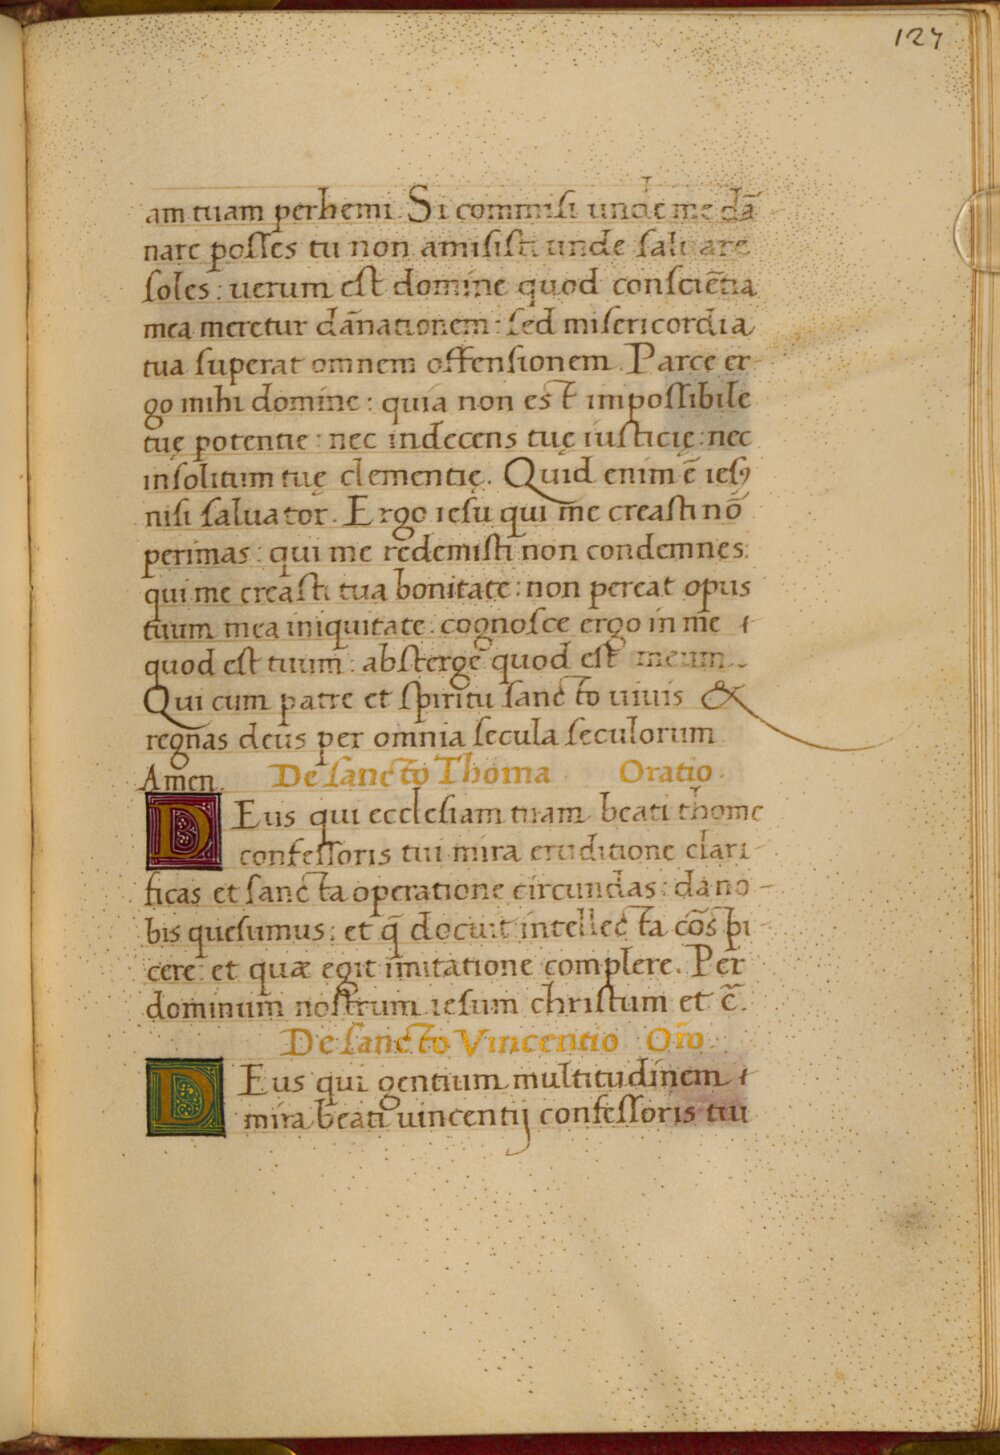 127
am tuam perhemi. Si commisi unde me dā
nare posses tu non amisisti unde saluare
soles: uerum est domine quod consciētia
mea meretur dānationem: sed misericordia
tua superat omnem offensionem. Parce er-
go mihi domine: quia non est impossibile
tuę potentie: nec indecens tuę iusticię: nec
insolitum tuę clementię. Quid enim ē iesꝰ
nisi saluator. Ergo iesu qui me creasti nō
perimas: qui me redemisti non condemnes:
qui me creasti tua bonitate: non pereat opus
tuum mea iniquitate. cognosce ergo in me
quod est tuum: absterge quod est meum.
Qui cum patre et spiritu sancto uiuis &
regnas deus per omnia secula seculorum
Amen. De sancto Thoma. Oratio.
DEus qui ecclesiam tuam beati thome
confessoris tui mira eruditione clari-
ficas et sancta operatione circundas: da no-
bis quesumus: et q̄ docuit intellecta cōspi-
cere: et quæ egit imitatione complere. Per
dominum nostrum iesum christum et c̄.
De sancto Vincentio Orō.
DEus qui gentium multitudinem
mira beati uincentij confessoris tui